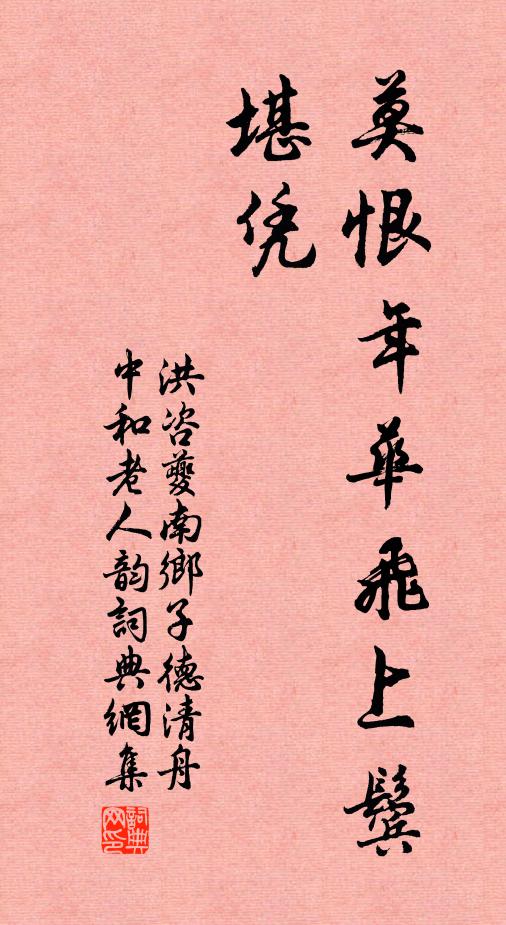 莫恨年華飛上鬓
堪凭
洪咨夔南鄉子德清舟
中和老人韵詞典網集
詞典网印